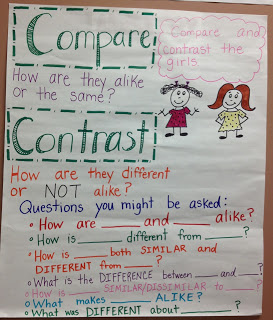 Compare
Compare and
contrast the
girls
How are they alike
or the same?
Contrast
How are they different
or NOT alike?
Questions you might be asked:
How are ___ and ___ alike?
How is ___ different from ___?
How is ___ both SIMILAR and
DIFFERENT from ___?
What is the DIFFERENCE between ___ and ___?
How is ___ SIMILAR/DISSIMILAR to ___?
What makes ___ ALIKE?
What was DIFFERENT about ___?